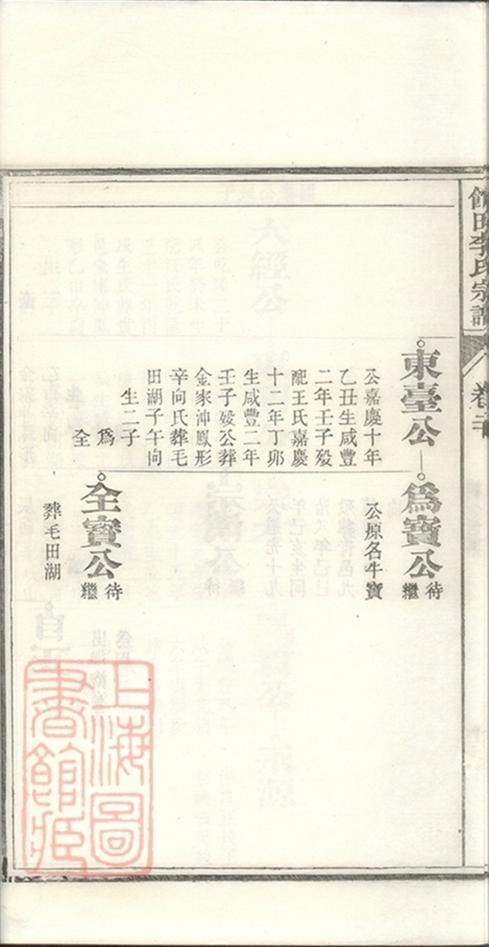 李氏宗譜
東臺公
公嘉慶十年
乙丑生咸豐
二年壬子殁
配王氏嘉慶
十二年丁卯
生咸豐二年
壬子殁公葬
金家沖鳳形
辛向氏葬毛
田湖子午向
生二子
爲
全
爲寶公
待
繼
公原名牛寶
全寶公
待
繼
葬毛田湖
上海圖
書館藏